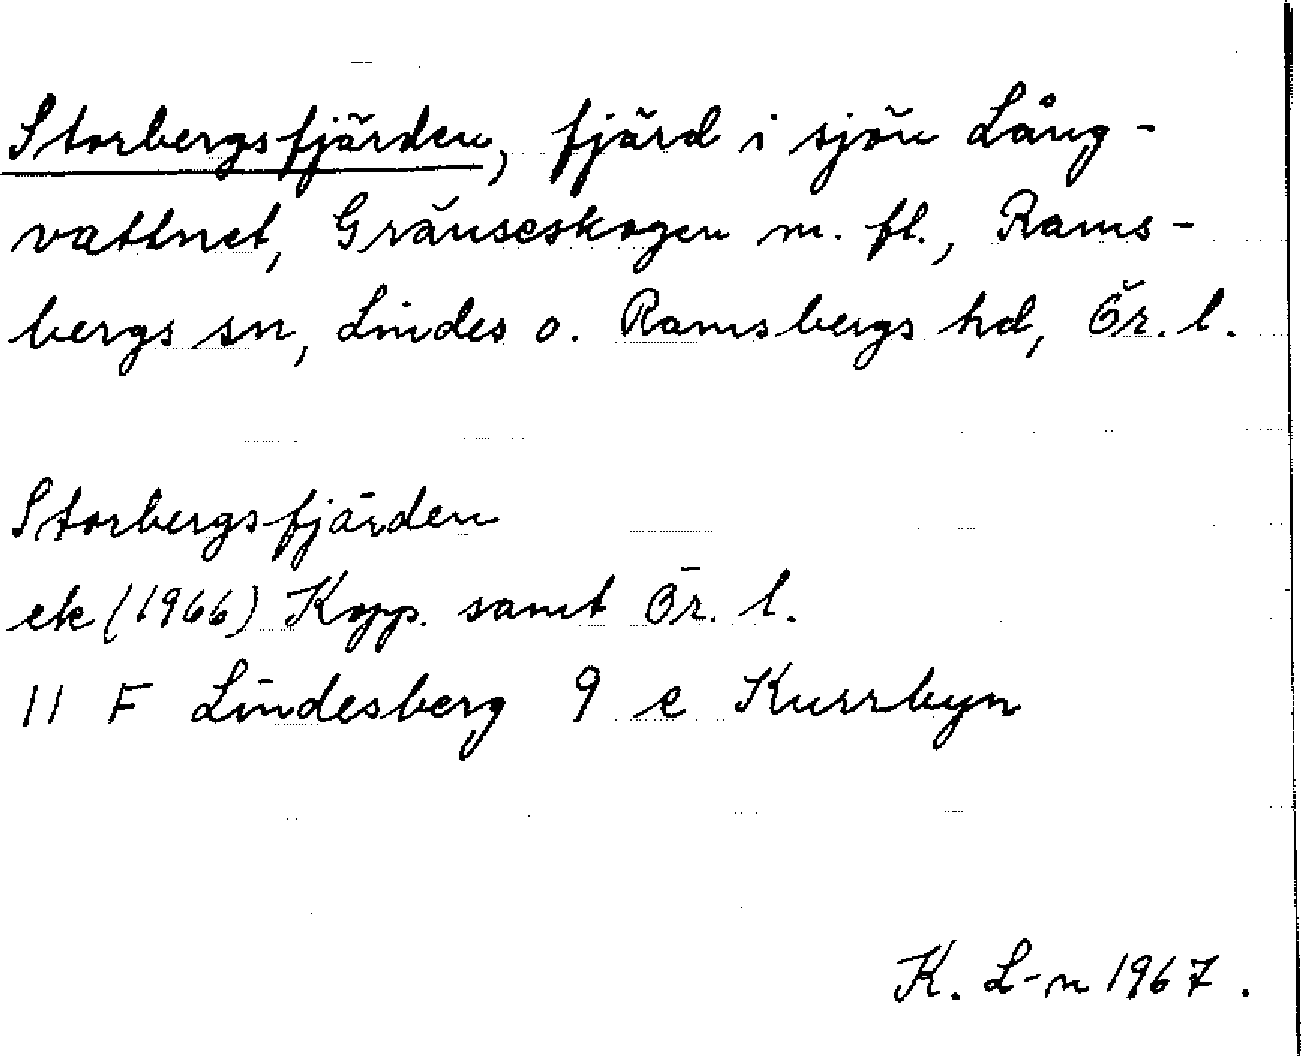 Storbergsfjärden, fjärd i sjön Lång-
vattnet, Gränseskogen m. fl., Rams-
bergs sn, Lindes o. Ramsbergs hd, Ör. l.
Storbergsfjärden
ek (1966) Kopp. samt Ör. l.
11 F Lindesberg 9 e Kurrbyn
K. L-n 1967.